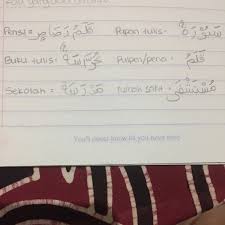 Pensil = قَلَمُ رَصَاصٍ Papan tulis = سَبُّوْرَةٌ
Buku tulis = كُرَّاسَةٌ Pulpen/pena = قَلَمٌ
Sekolah = مَدْرَسَةٌ rumah sakit = مُسْتَشْفَى
You'll never know till you have tried